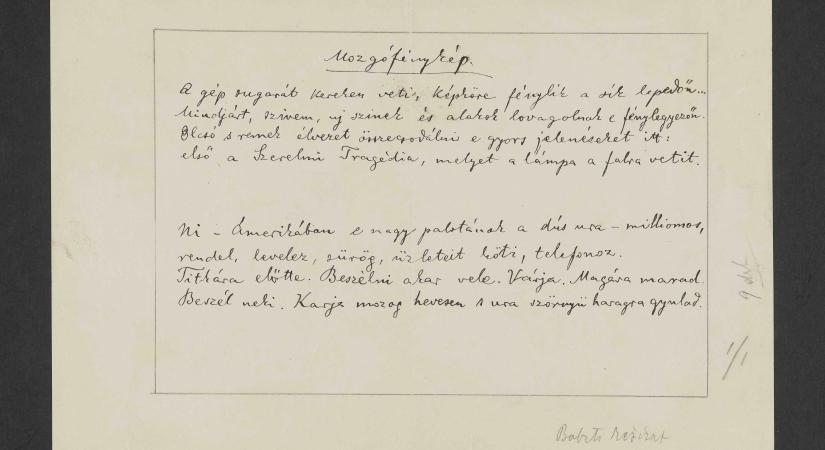 Mozgófénykép.
A gép sugarát kereken veti, képköre fénylik a sík lepedőn...
Mindjárt, szivem, uj szinek és alakok lovagolnak e fénylegyezőn.
Olcsó s remek élvezet összecsodálni e gyors jelenéseket itt:
első a Szerelmi Tragédia, melyet a lámpa a falra vetit.
Ni – Amerikában e nagy palotának a dús ura – milliomos,
rendel, levelez, sürög, üzleteit köti, telefonoz.
Titkára előtte. Beszélni akar vele. Várja. Magára marad.
Beszél neki. Karja mozog hevesen s ura szörnyü haragra gyulad.
1/1
9 db
Babits kézirat